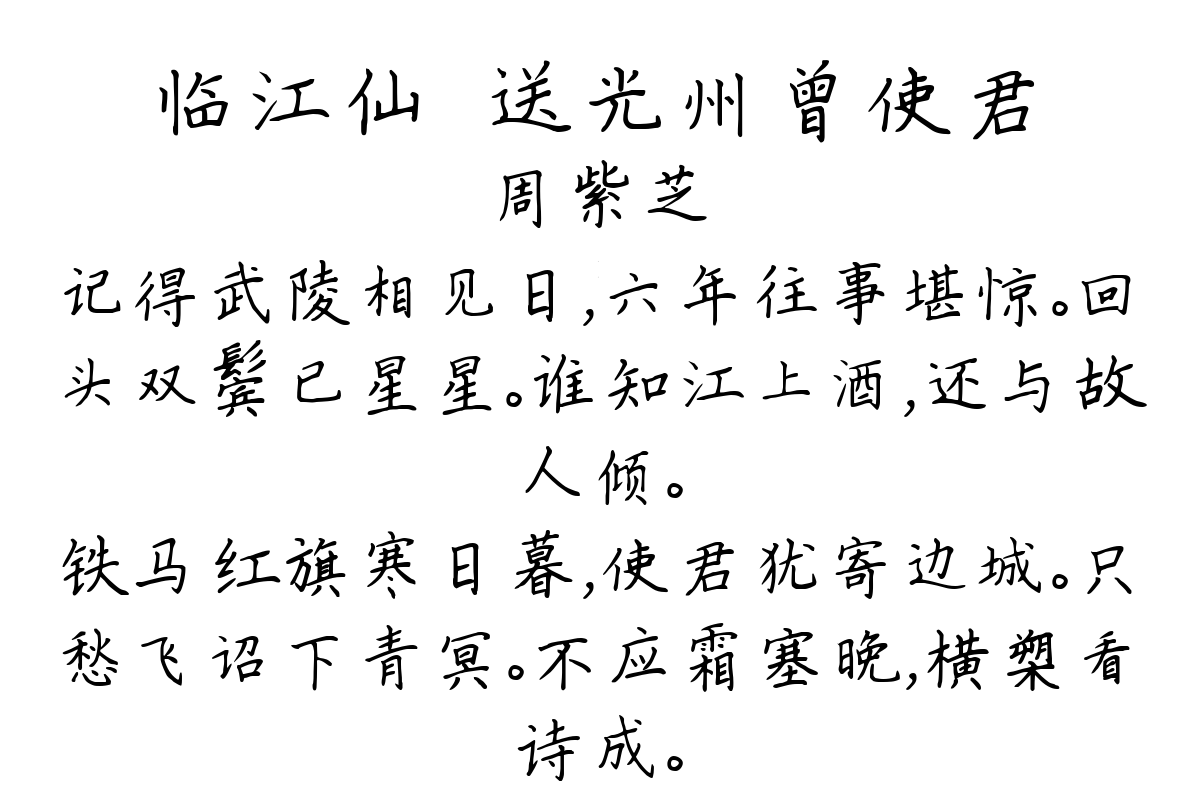 临江仙 送光州曾使君
周紫芝
记得武陵相见日,六年往事堪惊。回
头双鬓已星星。谁知江上酒,还与故
人倾。
铁马红旗寒日暮,使君犹寄边城。只
愁飞诏下青冥。不应霜塞晚,横槊看
诗成。